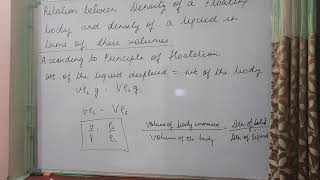 Relation between Density of a Floating
body and density of a liquid in
terms of their volumes.
According to Principle of Floatation
wt of the liquid displaced = wt of the body
vρ₁g = Vρₛg
vρ₁ = Vρₛ
v/V = ρₛ/ρ₁
Volume of body immersed / Volume of the body = Den. of Solid / Den. of liquid